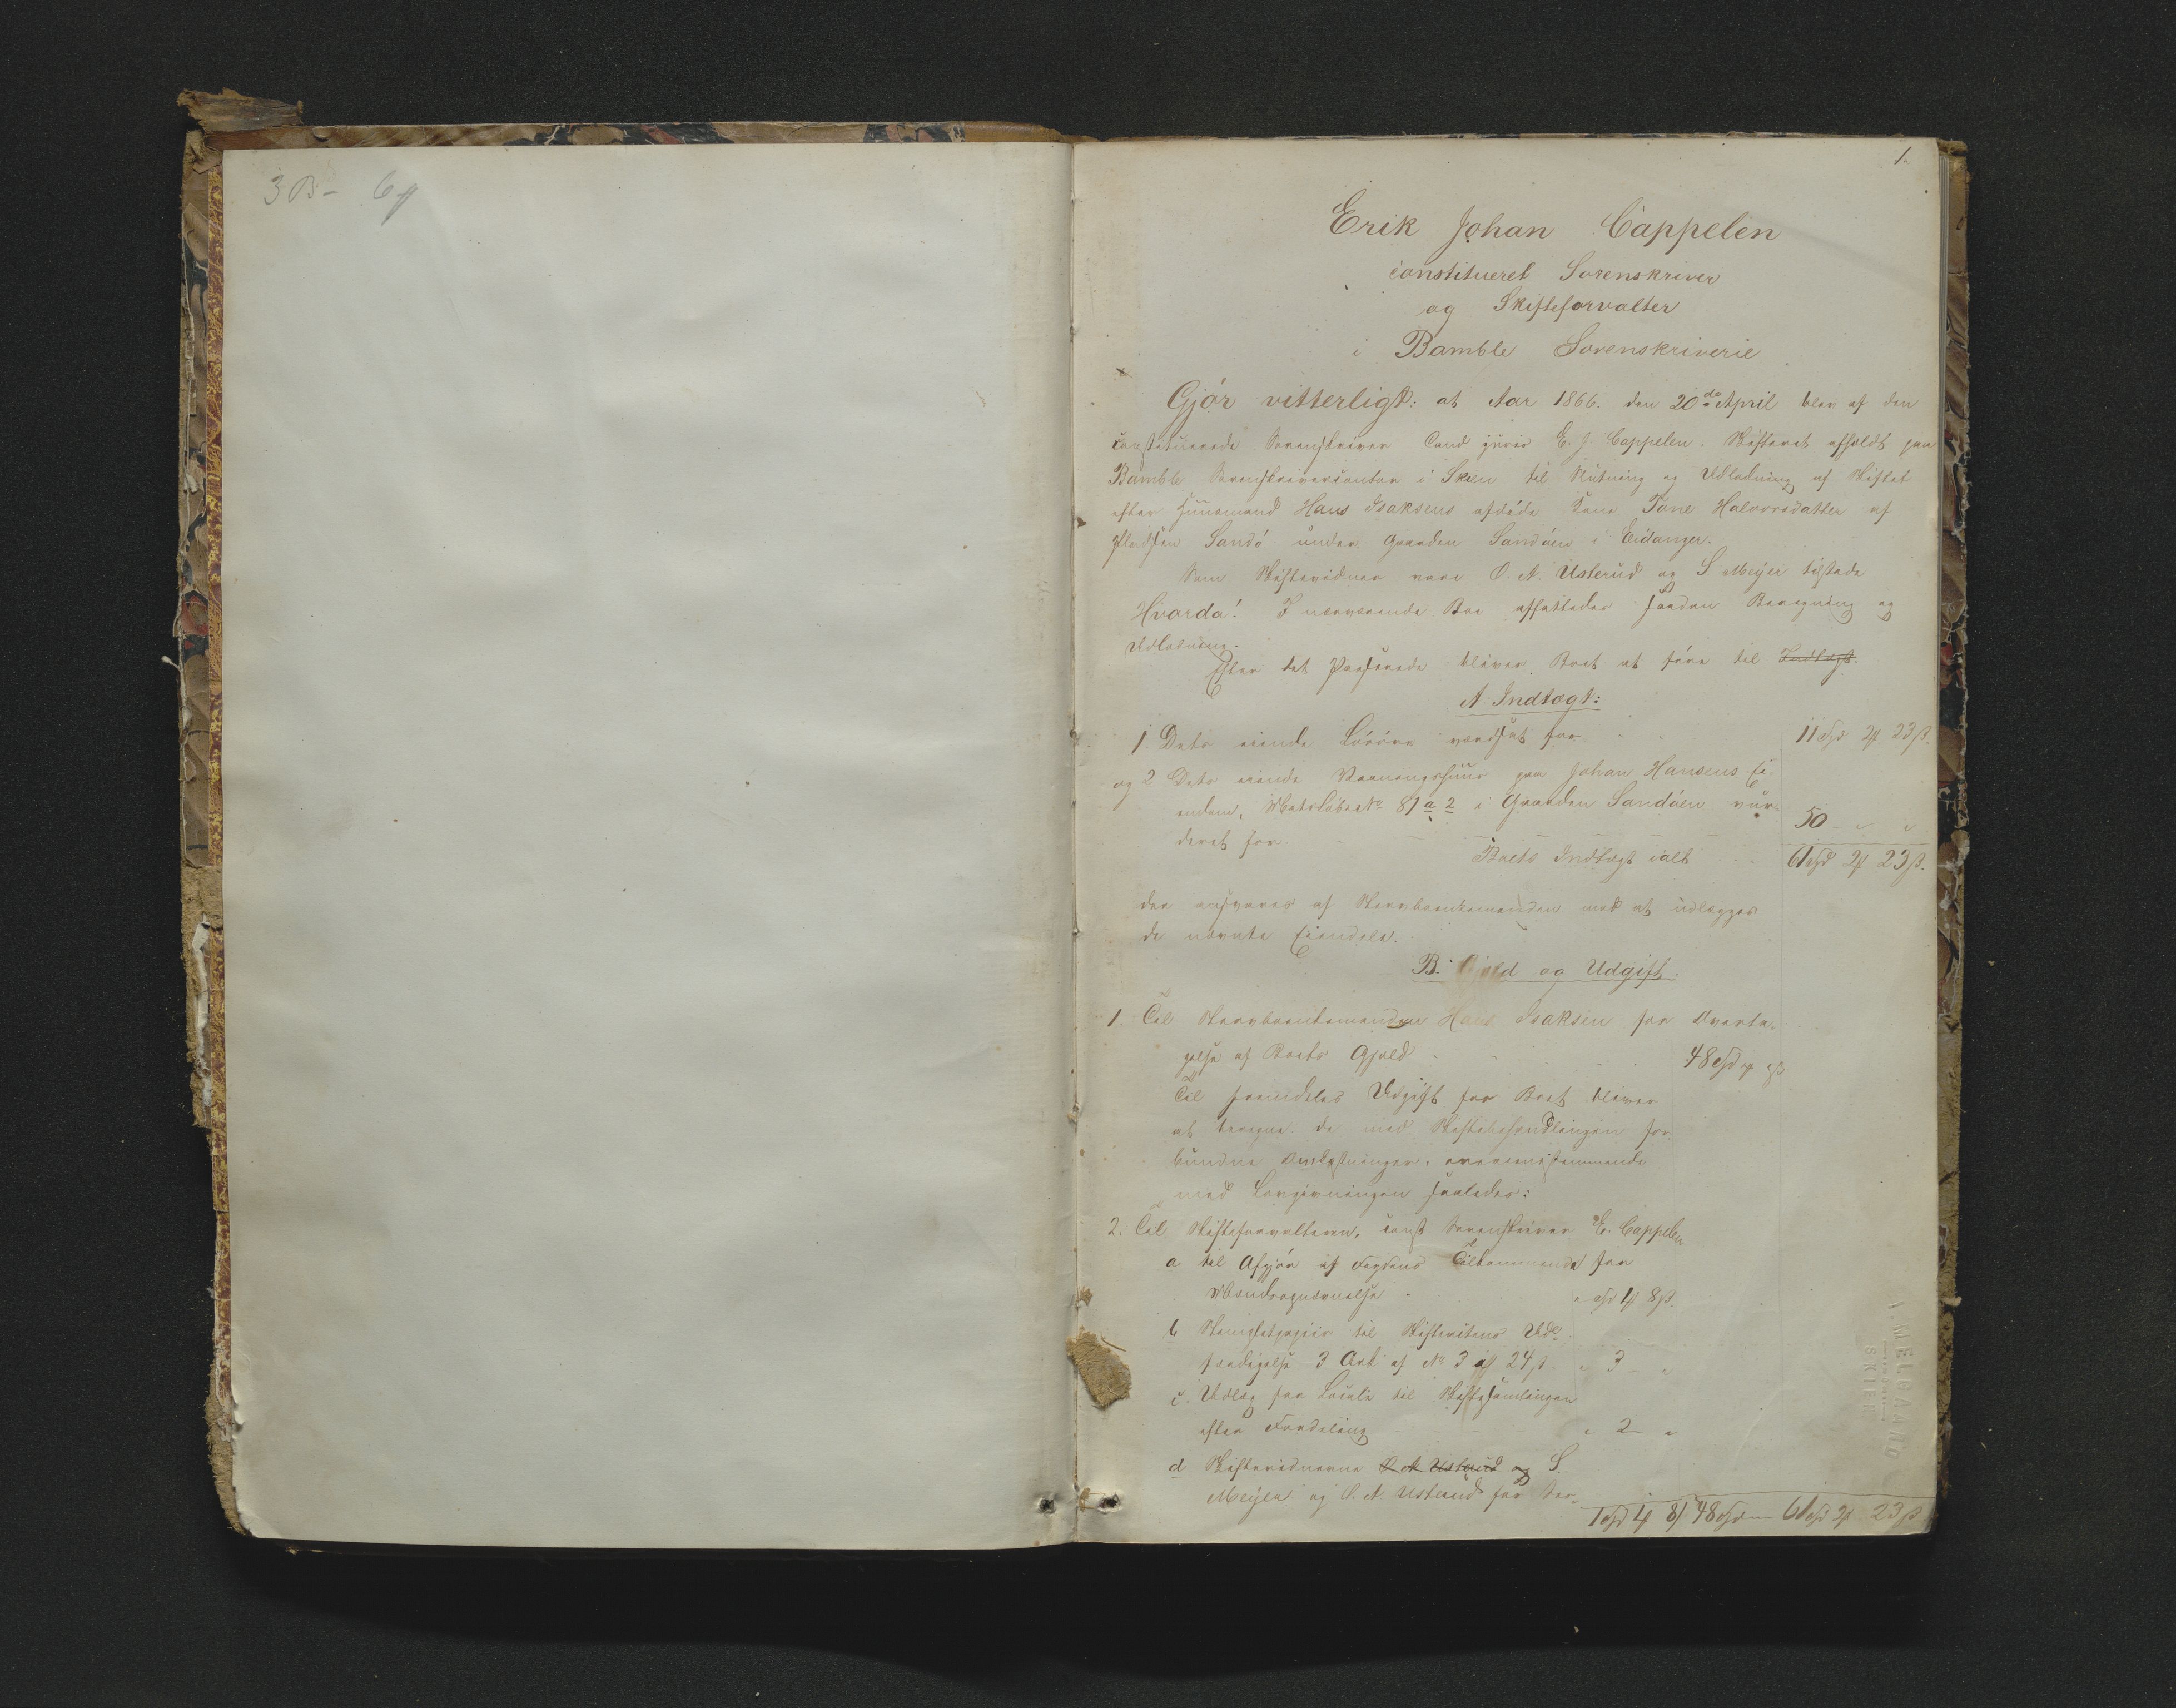 3 B - 6
1.
Erik Johan Cappelen
constitueret Sorenskriver
og Skifteforvalter
i Bamble Sorenskriverie
Gjør vitterligt: at Aar 1866. den 20de April blev af den
constituerede Sorenskriver Cand juris E. J. Cappelen. Skifteret afholdt paa
Bamble Sorenskrivercontor i Skien til Slutning og Udlodning af Skiftet
efter Huusmand Hans Isaksens afdøde Kone Tone Halvorsdatter af
Pladsen Sandø under Gaarden Sandøen i Eidanger.
Som Skiftevidner vare O. A. Usterud og S Meyer tilstede
Hvorda! I nærværende Boe affattedes saadan Beregning og
Udlodning.
Efter det Passerede bliver Boet at føre til Indtægt.
A Indtægt:
1. Dets eiende Løsøre værdsat for 11 Spd 2 23 ß.
og 2 Dets eiende Vaaningshuus paa Johan Hansens Ei-
endom, Matr Løbe No 81 a 2 i Gaarden Sandøen vur-
deret for 50 " "
Boets Indtægt ialt 61 Spd 2 23 ß.
der ansvares af Stervboenkemanden med at udlægges
de nævnte Eiendele.
B. Gjeld og Udgift.
1. Til Stervboenkemanden Hans Isaksen for Overta-
gelse af Boets Gjeld 48 Spd
Til fremdeles Udgift for Boet bliver
at beregne de med Skiftebehandlingen for-
bundne Omkostninger, overeensstemmende
med Lovgivningen saaledes:
2. Til Skifteforvalteren, const Sorenskriver E. Cappelen
a til Afgjør af Fogdens Tilkommende for
" Spd 1 8 ß.
b Stemplet papiir til Skiftebrevets Ud-
færdigelse 3 Ark af No 3 a 24 ß. " 3 - "
c. Udlæg for Locale til Skiftesamlingen
efter Fordeling " 2 - "
d Skiftevidnerne O A Usterud og S.
Meyer og O. A Usterud for
1 Spd 4 8 48 Spd 61 Spd 2 23 ß
SKIEN